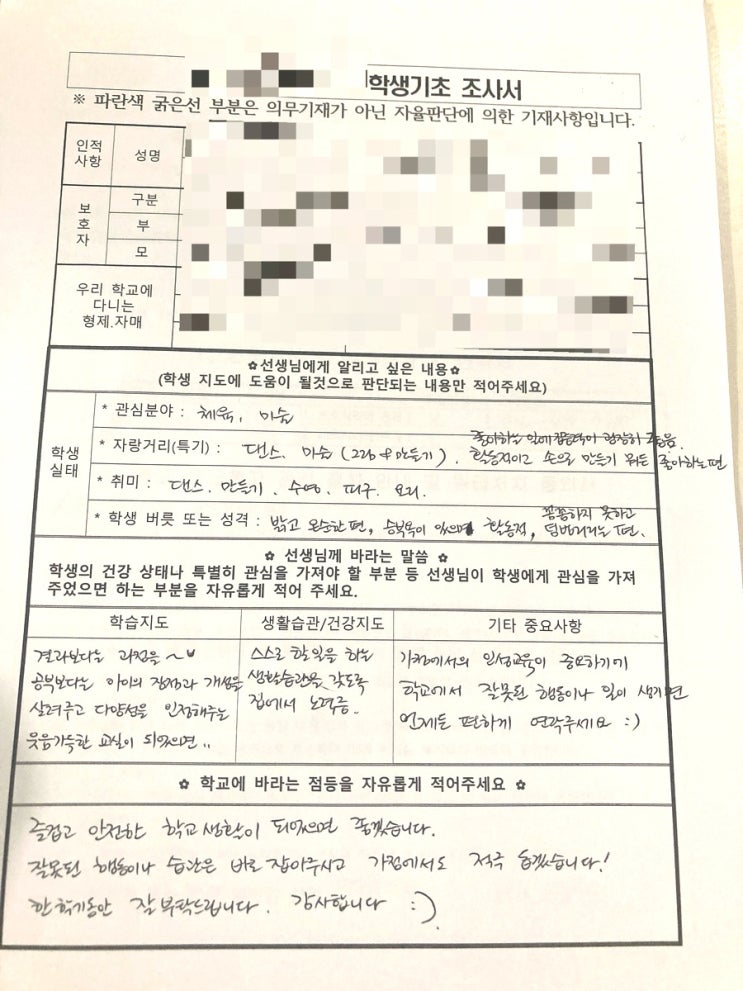 학생기초 조사서
※ 파란색 굵은선 부분은 의무기재가 아닌 자율판단에 의한 기재사항입니다.
인적
사항
성명
보
호
자
구분
부
모
우리 학교에
다니는
형제.자매
✿선생님에게 알리고 싶은 내용✿
(학생 지도에 도움이 될것으로 판단되는 내용만 적어주세요)
학생
실태
* 관심분야 : 체육, 미술
좋아하는 일에 집중력이 굉장히 좋음.
* 자랑거리(특기) : 댄스, 미술 (그리기&만들기). 활동적이고 손으로 만들기 뭐든 좋아하는편
* 취미 : 댄스, 만들기, 수영, 피구, 요리.
꼼꼼하지 못하고
* 학생 버릇 또는 성격 : 밝고 온순한편, 승부욕이 있으며 활동적, 덤벙거리는 편.
✿ 선생님께 바라는 말씀 ✿
학생의 건강 상태나 특별히 관심을 가져야 할 부분 등 선생님이 학생에게 관심을 가져
주었으면 하는 부분을 자유롭게 적어 주세요.
학습지도
결과보다는 과정을 ~
공부보다는 아이의 장점과 개성을
살려주고 다양성을 인정해주는
웃음가득한 교실이 되었으면..
생활습관/건강지도
스스로 할일을 하는
생활습관을 갖도록
집에서 노력중.
기타 중요사항
가정에서의 인성교육이 중요하기에
학교에서 잘못된 행동이나 일이 생기면
언제든 편하게 연락주세요 :)
✿ 학교에 바라는 점등을 자유롭게 적어주세요 ✿
즐겁고 안전한 학교생활이 되었으면 좋겠습니다.
잘못된 행동이나 습관은 바로 잡아주시고 가정에서도 적극 돕겠습니다!
한 학기동안 잘 부탁드립니다. 감사합니다 :).